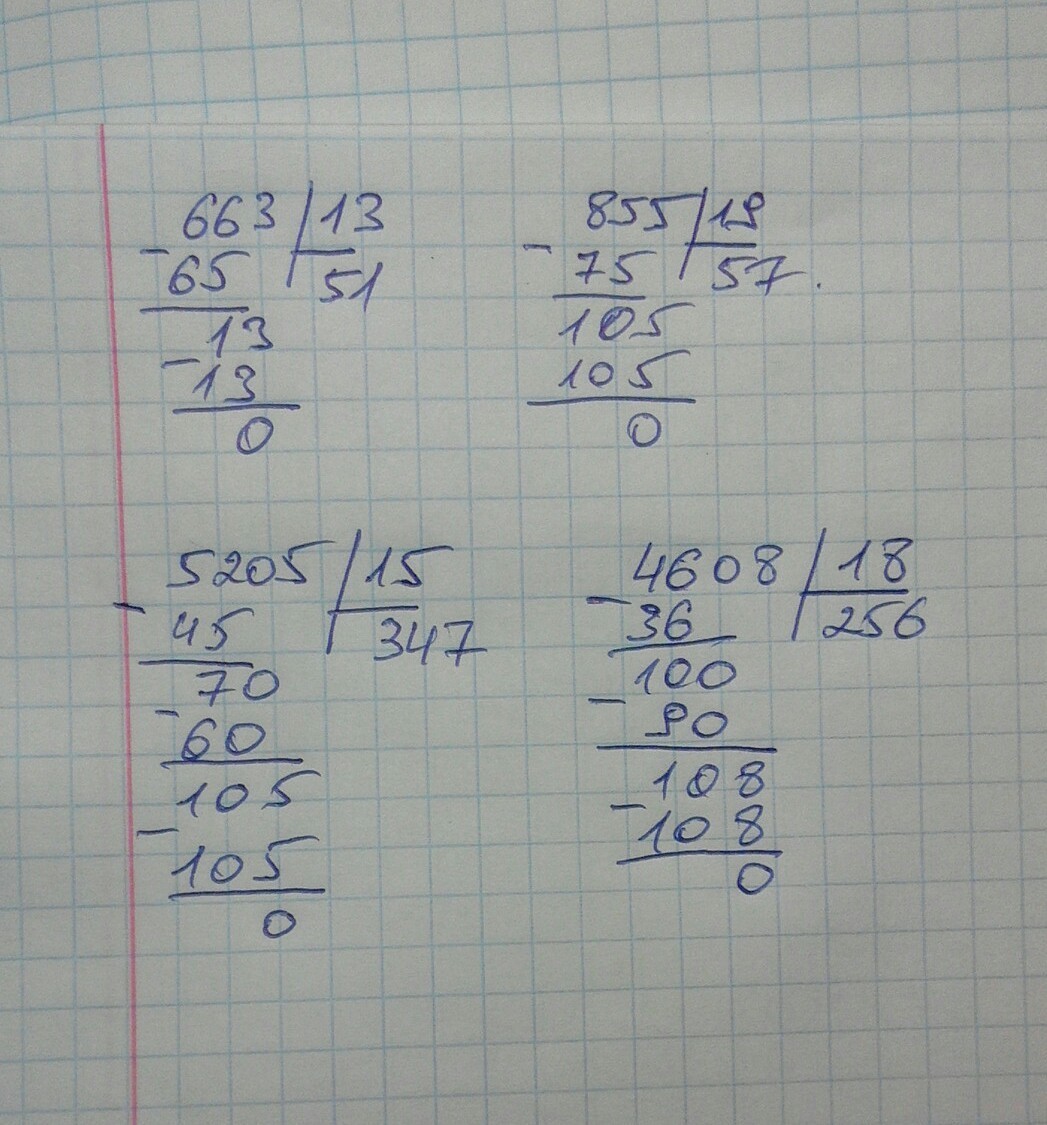 663 | 13
- 65 51
13
- 13
0
855 | 19
- 75 57.
105
105
0
5205 | 15
- 45 347
70
- 60
105
- 105
0
4608 | 18
- 36 256
100
- 90
108
- 108
0